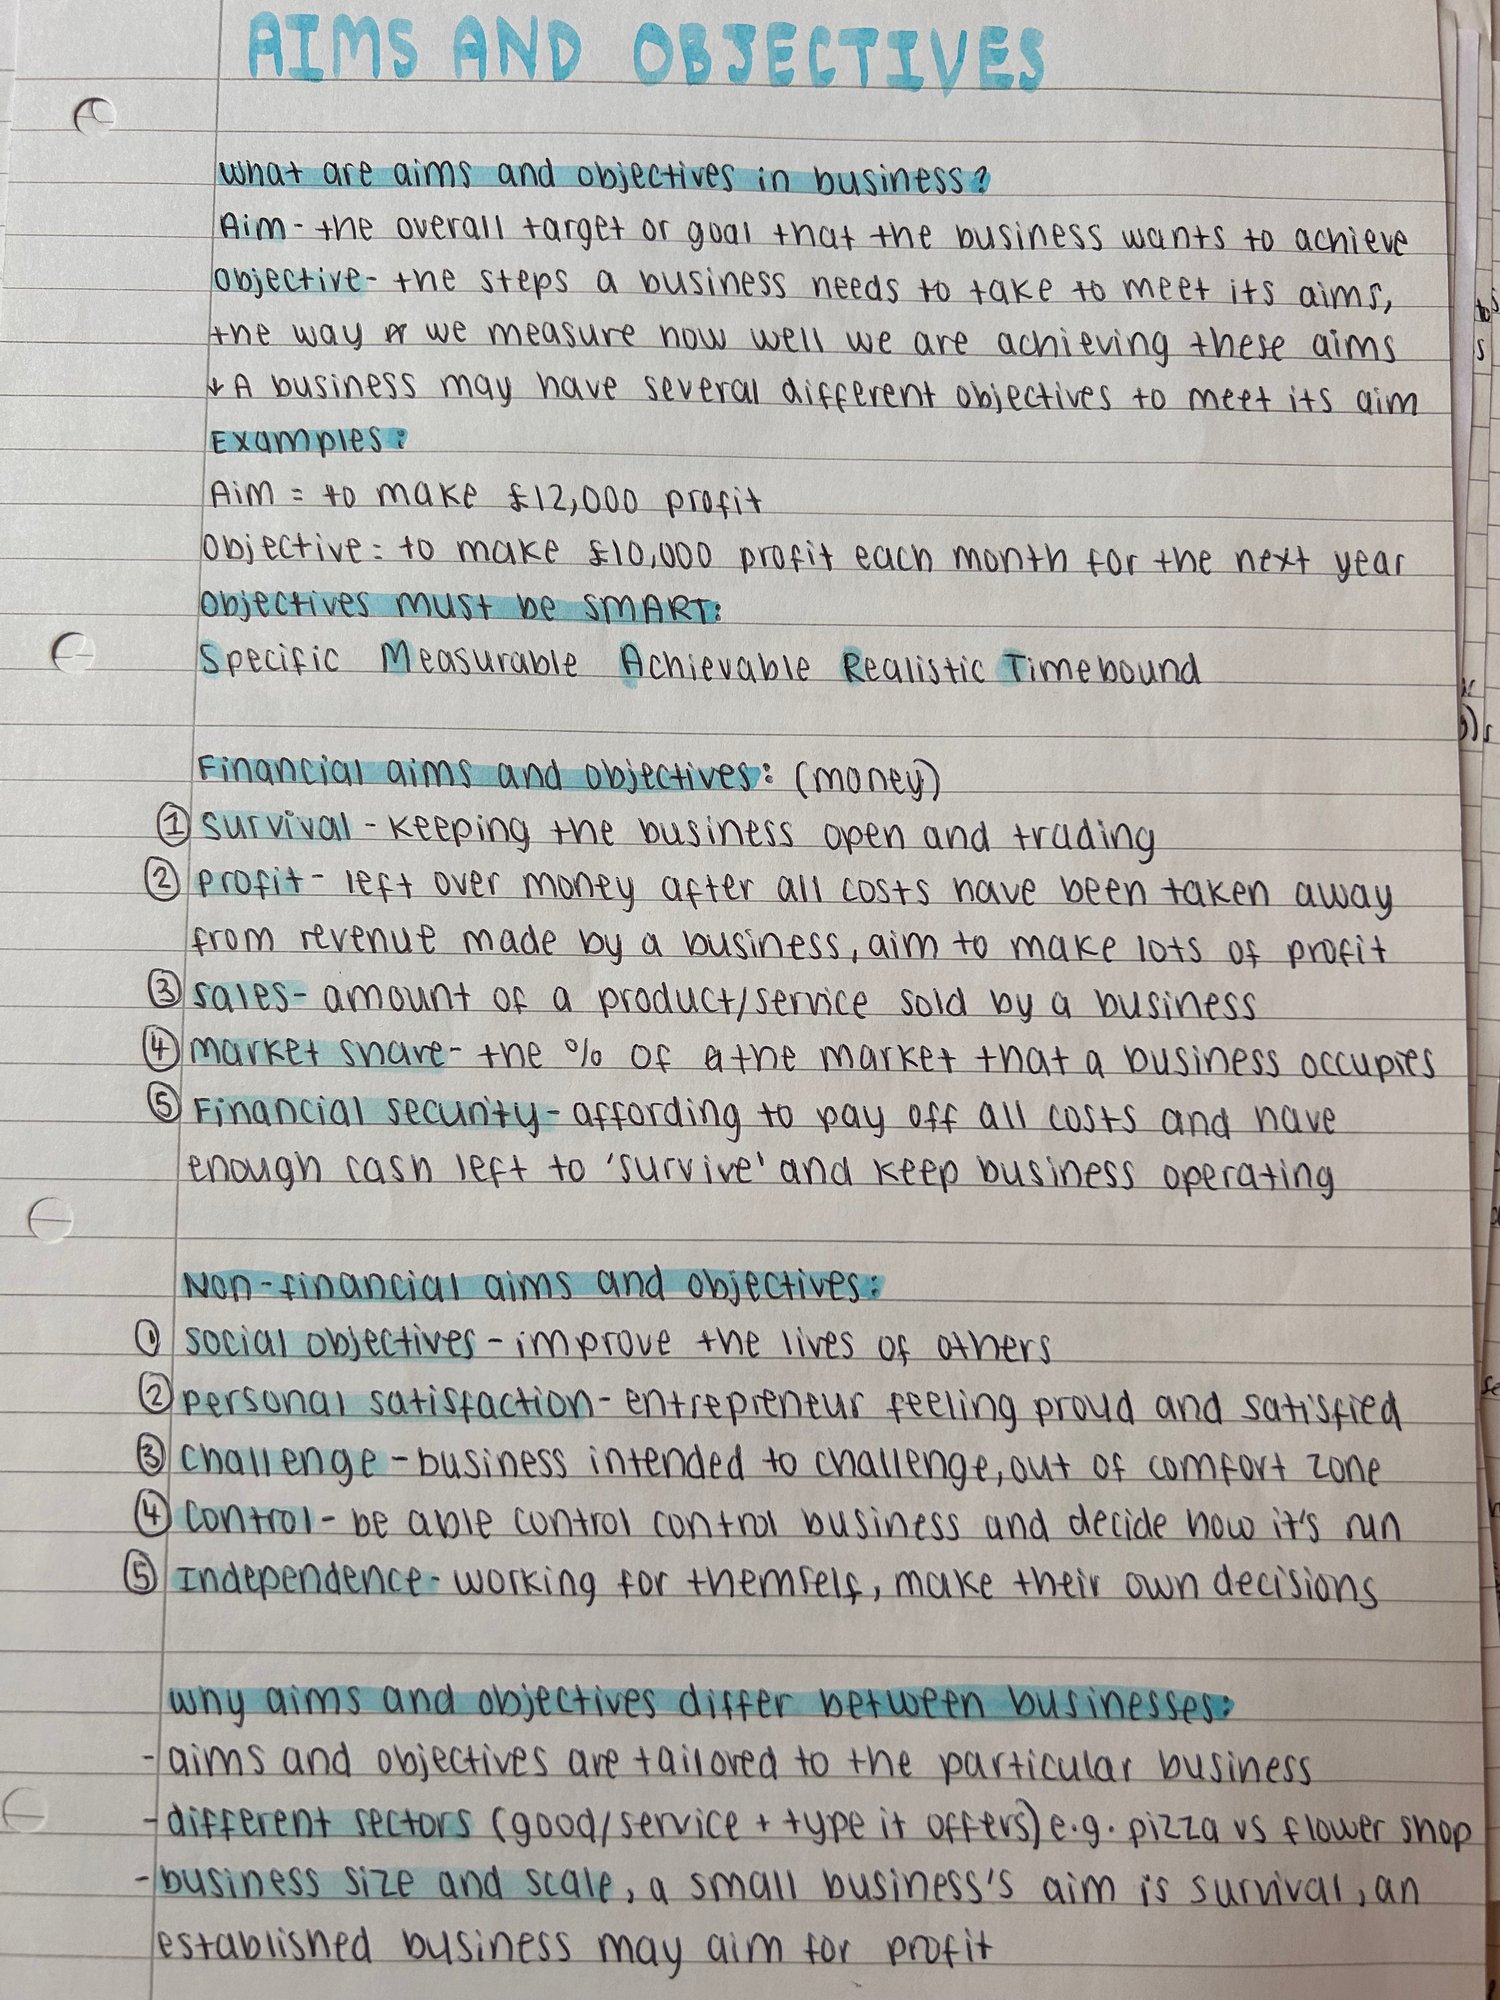 AIMS AND OBJECTIVES
What are aims and objectives in business?
Aim - the overall target or goal that the business wants to achieve
Objective - the steps a business needs to take to meet its aims,
the way we measure how well we are achieving these aims
↓ A business may have several different objectives to meet its aim
Examples:
Aim = to make £12,000 profit
Objective = to make £10,000 profit each month for the next year
Objectives must be SMART:
Specific Measurable Achievable Realistic Timebound
Financial aims and objectives: (money)
① Survival - keeping the business open and trading
② profit - left over money after all costs have been taken away
from revenue made by a business, aim to make lots of profit
③ sales - amount of a product/service sold by a business
④ market share - the % of the market that a business occupies
⑤ Financial security - affording to pay off all costs and have
enough cash left to 'survive' and keep business operating
Non-financial aims and objectives:
① social objectives - improve the lives of others
② personal satisfaction - entrepreneur feeling proud and satisfied
③ Challenge - business intended to challenge, out of comfort zone
④ Control - be able control control business and decide how it's run
⑤ Independence - working for themself, make their own decisions
why aims and objectives differ between businesses:
- aims and objectives are tailored to the particular business
- different sectors (good/service + type it offers) e.g. pizza vs flower shop
- business size and scale, a small business's aim is survival, an
established business may aim for profit